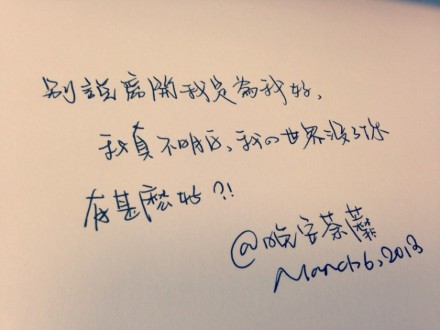 別說離開我是為我好,
我真不明白,我の世界沒了你
有甚麼好?!
@晚安荼蘼
March 6, 2013